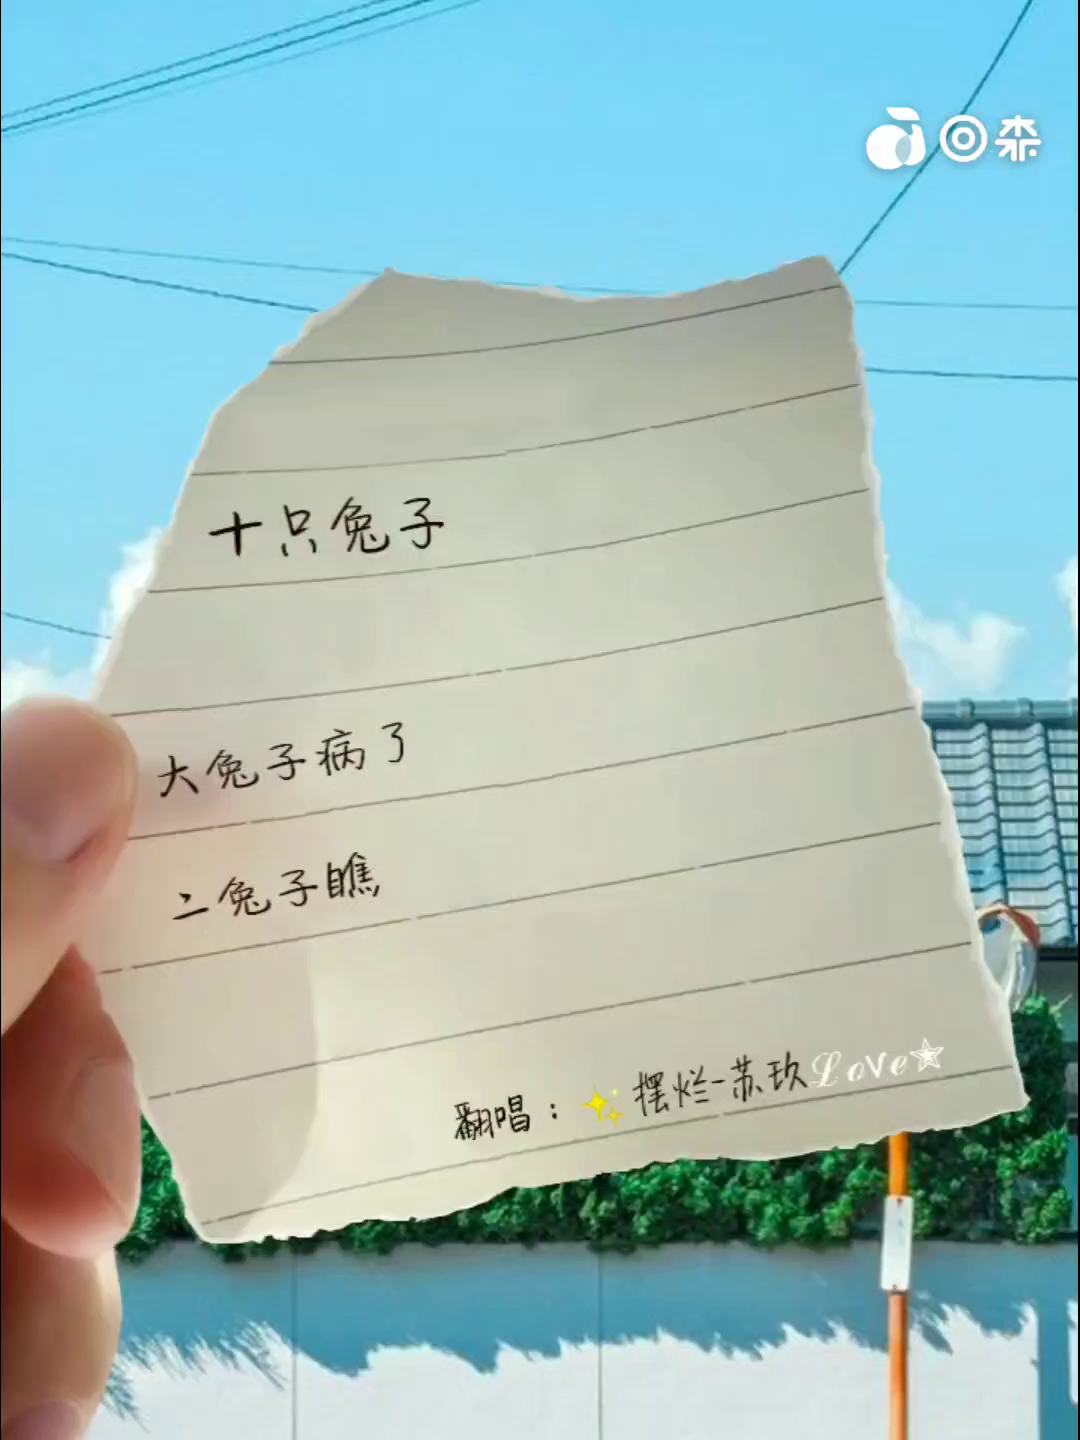 回森
十只兔子
大兔子病了
二兔子瞧
翻唱：✨摆烂-苏玖Love☆